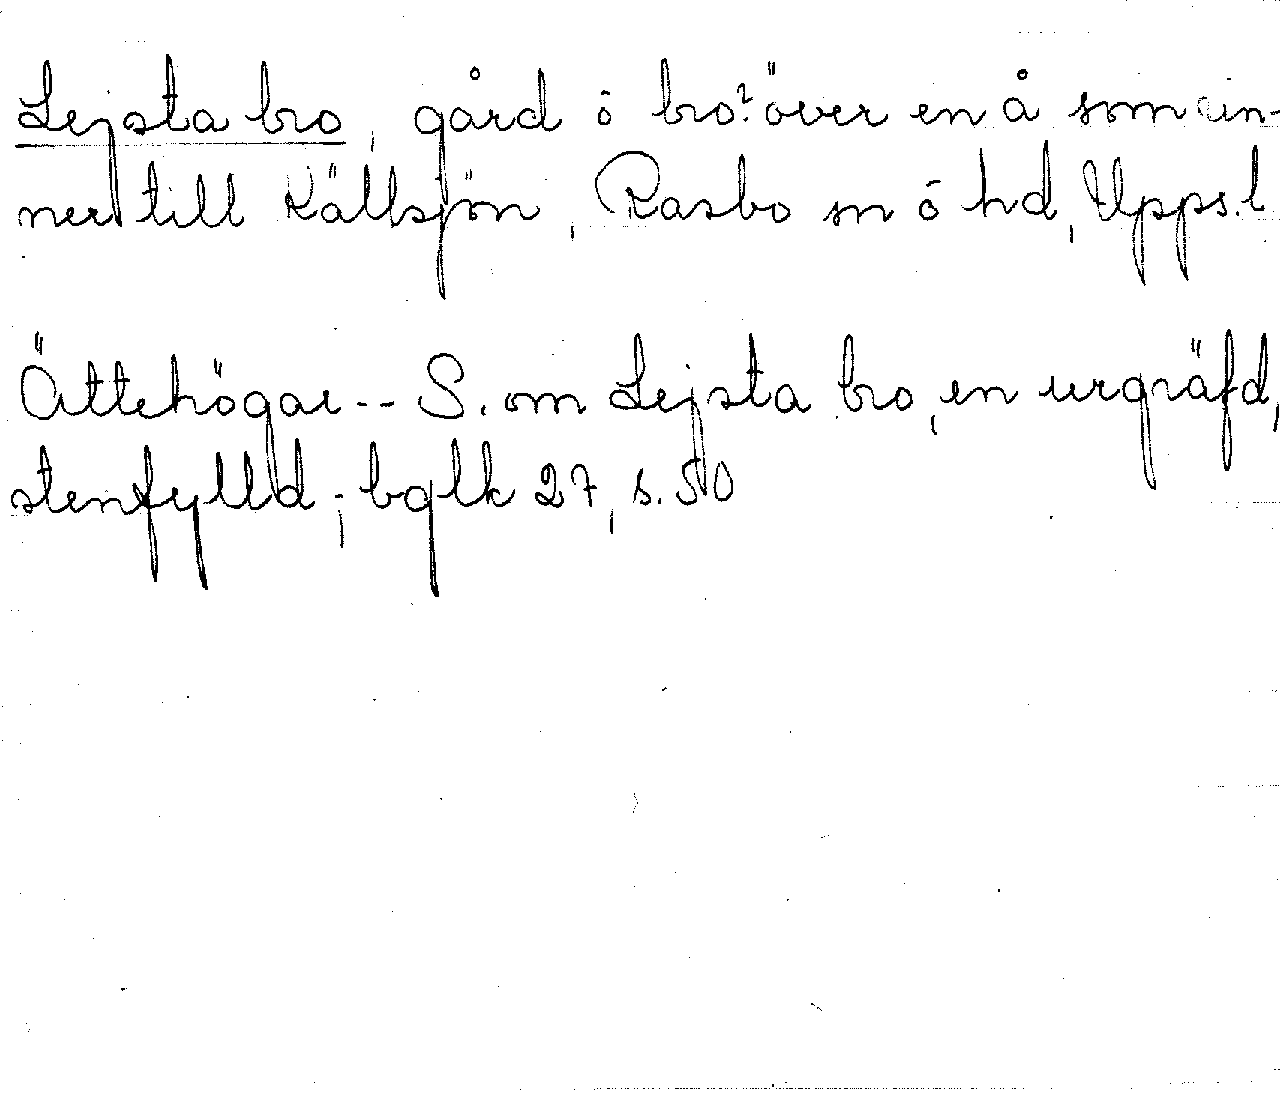 Lejsta bro, gård ō bro? över en å som rin-
ner till Källsjön, Rasbo sn ō hd, Upps. l
Ättehögar -- S. om Lejsta bro, en urgräfd,
stenfylld; bglk 27, s. 50